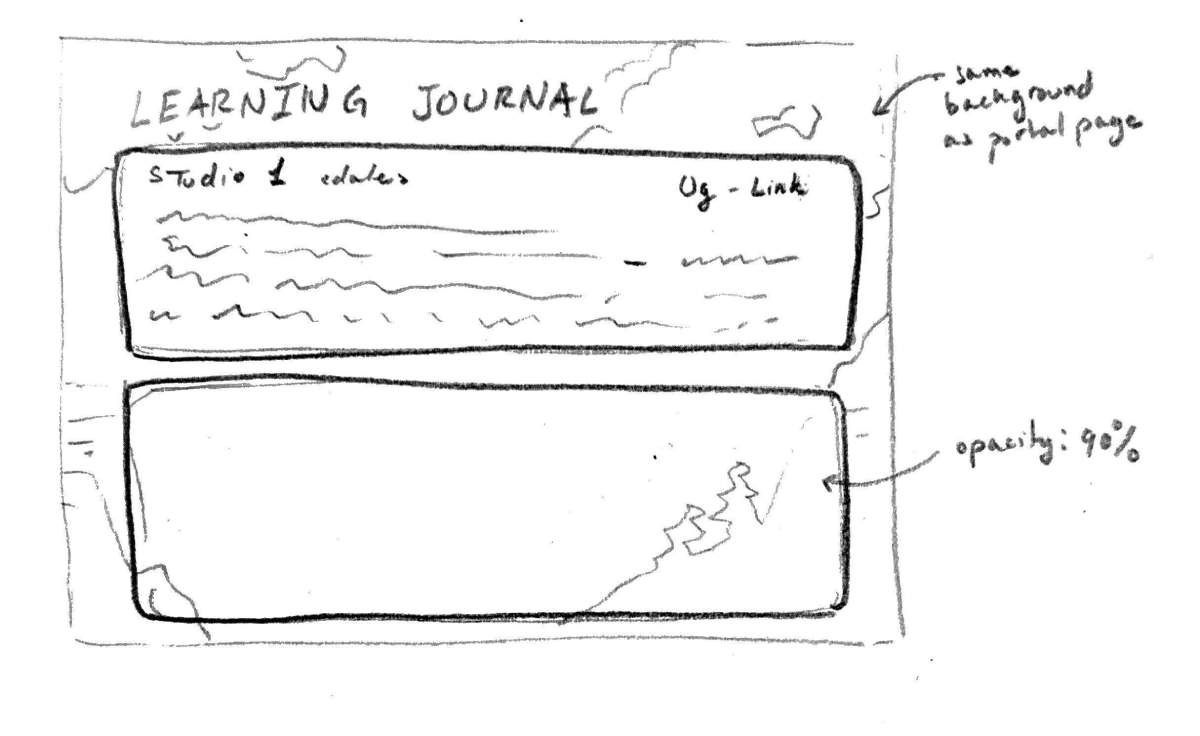 LEARNING JOURNAL
same
background
as portal page
STudio 1 <dates>
Ug - Link
opacity: 90%